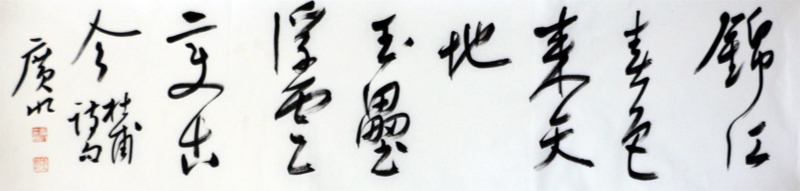 錦江
春色
來天
地
玉壘
浮雲
變古
今
杜甫
詩句
廣